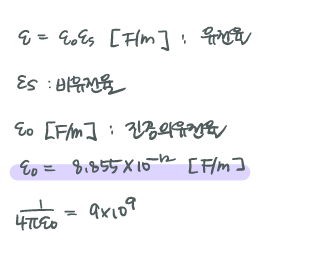 ε = ε₀εs [F/m] : 유전율
εs : 비유전율
ε₀ [F/m] : 진공의유전율
ε₀ = 8.855×10⁻¹² [F/m]
1/4πε₀ = 9×10⁹